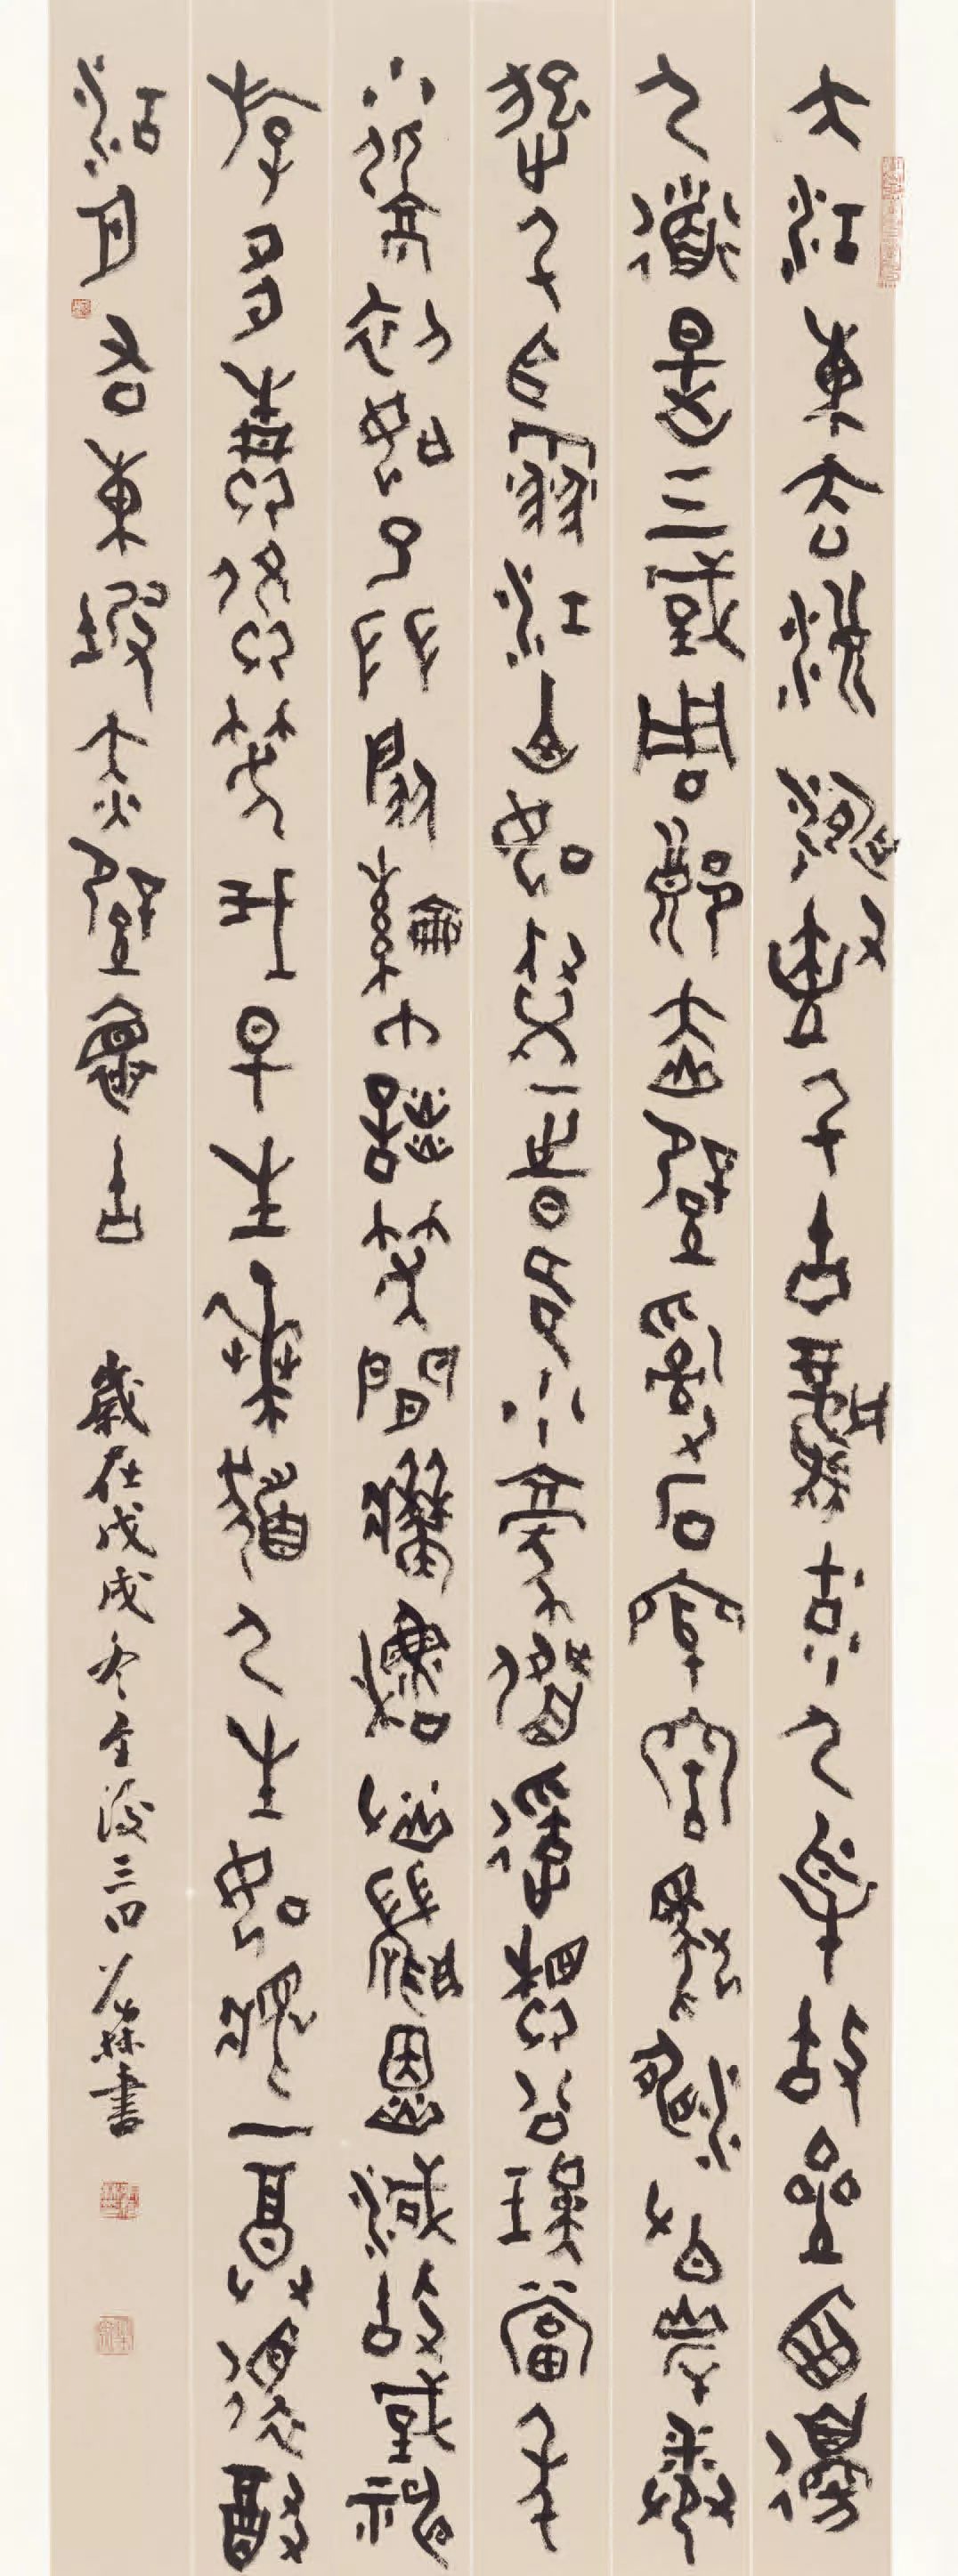 大江東去浪淘盡千古風流人物故壘西邊
人道是三國周郎赤壁亂石穿空驚濤拍岸卷
起千堆雪江山如畫一時多少豪傑遙想公瑾當年
小喬初嫁了羽扇綸巾談笑間檣櫓灰飛煙滅故國神
游多情應笑我早生華髮人生如夢一尊還酹
江月 右東坡赤壁懷古 歲在戊戌冬至後三日 林書